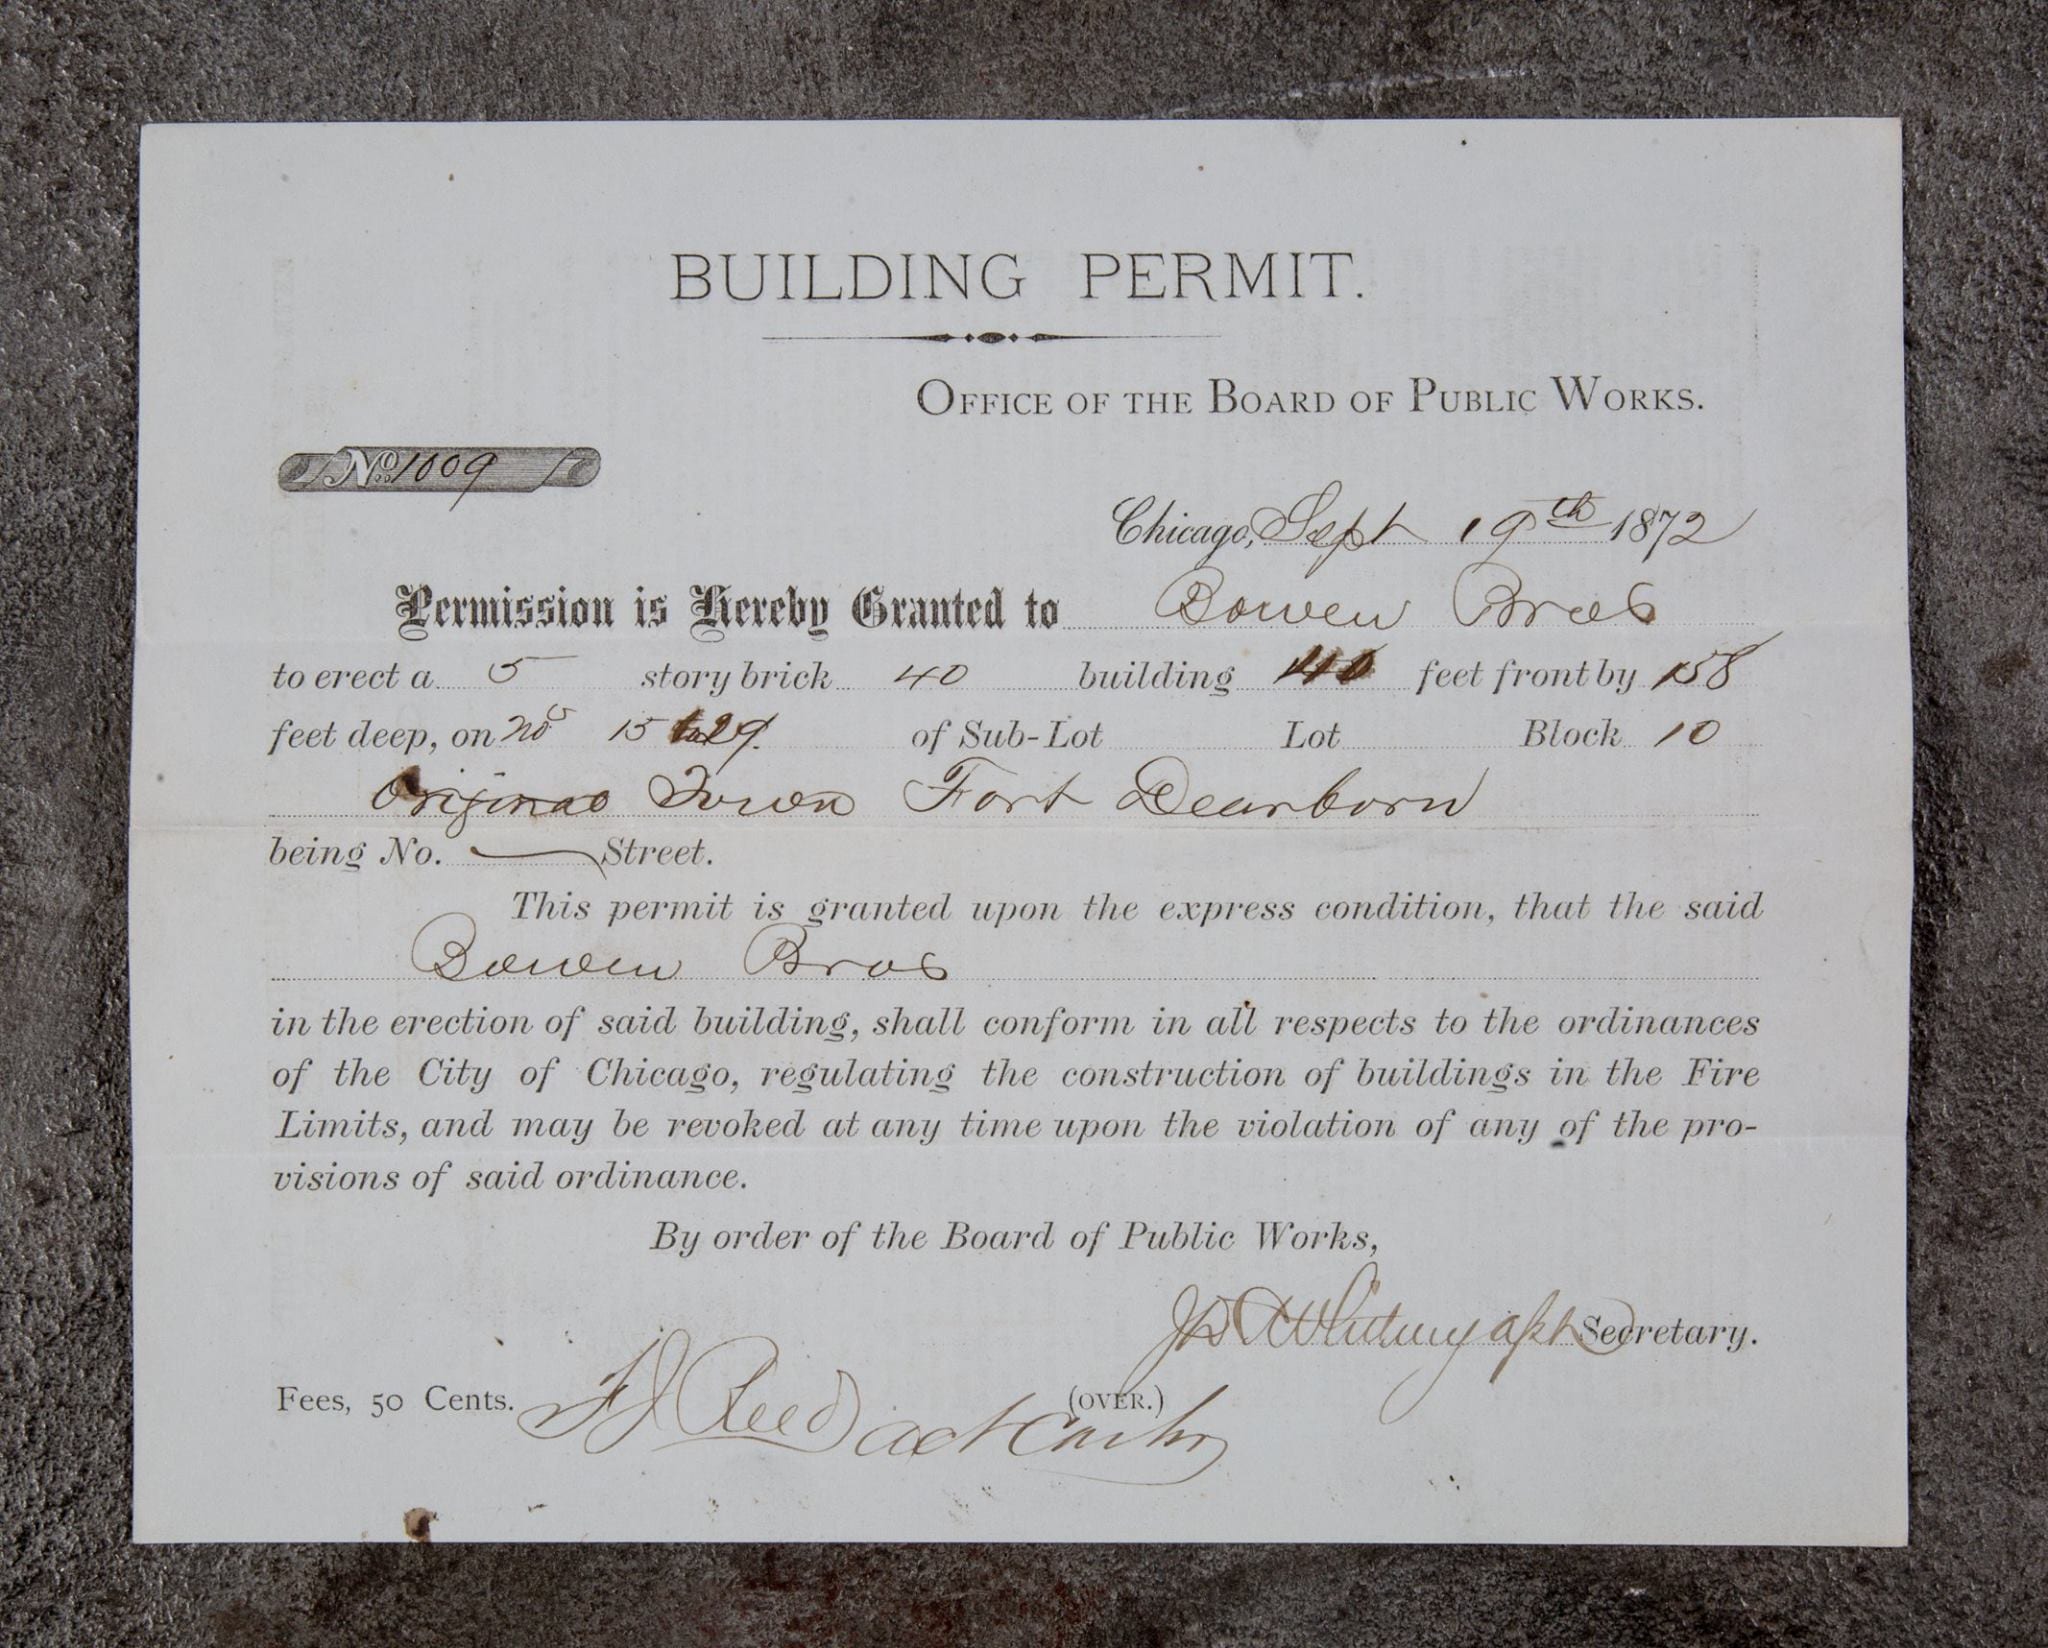 BUILDING PERMIT.
OFFICE OF THE BOARD OF PUBLIC WORKS.
No. 1009
Chicago, Sept 19th 1872
Permission is Hereby Granted to Bowen Bros
to erect a 5 story brick 40 building feet front by 158
feet deep, on nos 15 to 29. of Sub-Lot Lot Block 10
Original Town Fort Dearborn
being No. Street.
This permit is granted upon the express condition, that the said
Bowen Bros
in the erection of said building, shall conform in all respects to the ordinances
of the City of Chicago, regulating the construction of buildings in the Fire
Limits, and may be revoked at any time upon the violation of any of the pro-
visions of said ordinance.
By order of the Board of Public Works,
Secretary.
Fees, 50 Cents. Reed (OVER.)